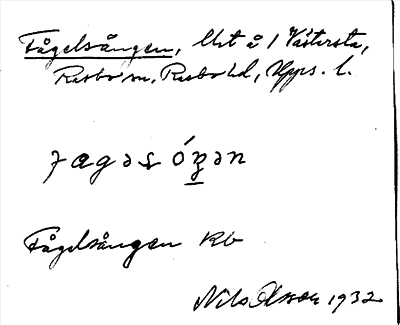 Fågelsången, Utt å 1 Västersta,
Rasbo sn, Rasbo hd, Upps. l.
Fågelsången Rb
Nils Olsson 1932